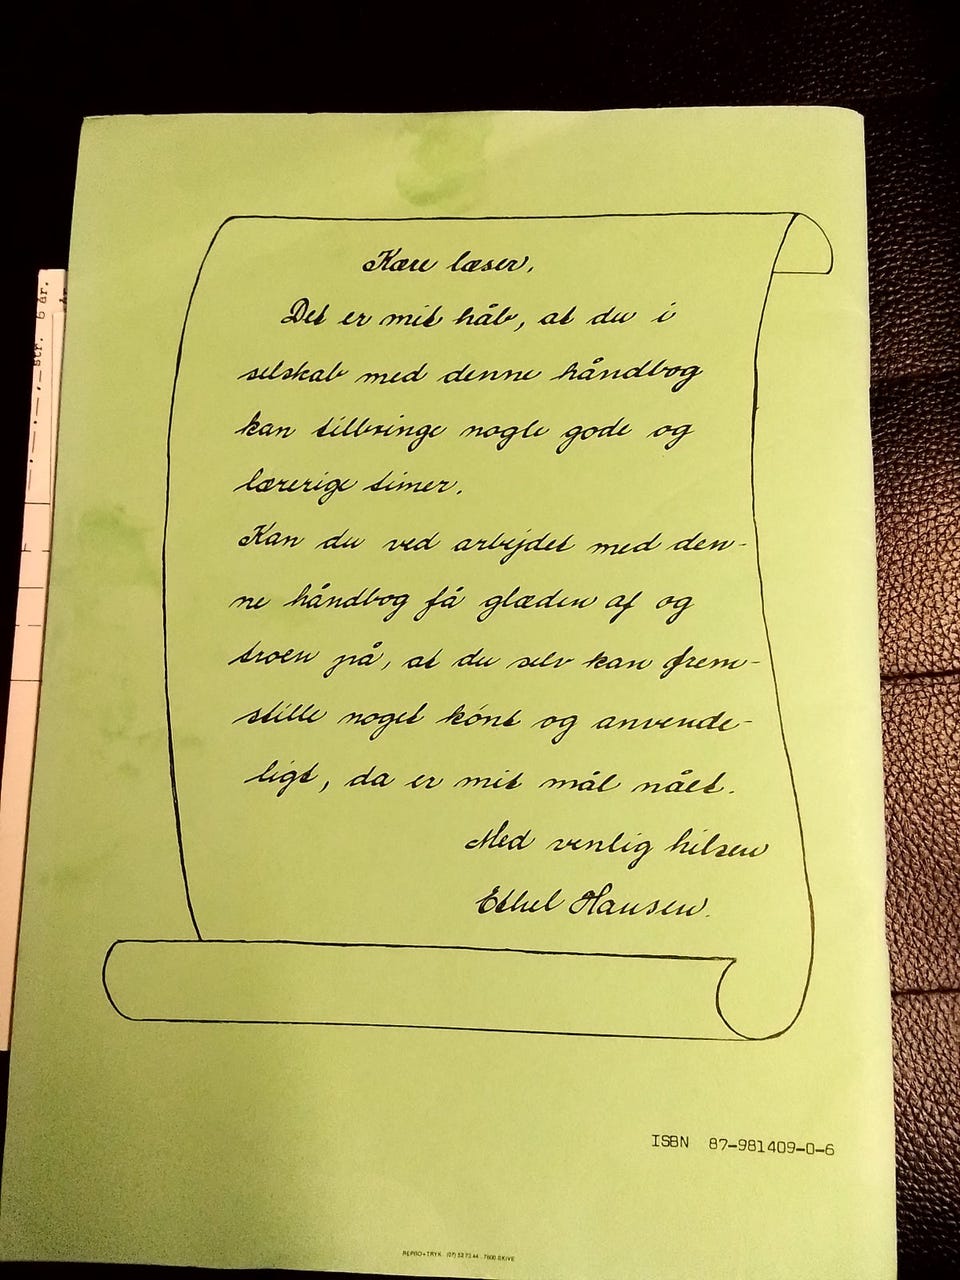 Kære læser,
Det er mit håb, at du i
selskab med denne håndbog
kan tilbringe nogle gode og
lærerige timer.
Kan du ved arbejdet med den-
ne håndbog få glæden af og
troen på, at du selv kan frem-
stille noget kónt og anvende-
ligt, da er mit mål nået.
Med venlig hilsen
Ethel Hansen.
ISBN 87-981409-0-6
REPRO+TRYK (07) 52 73 44 . 7800 SKIVE
str. 6 år.